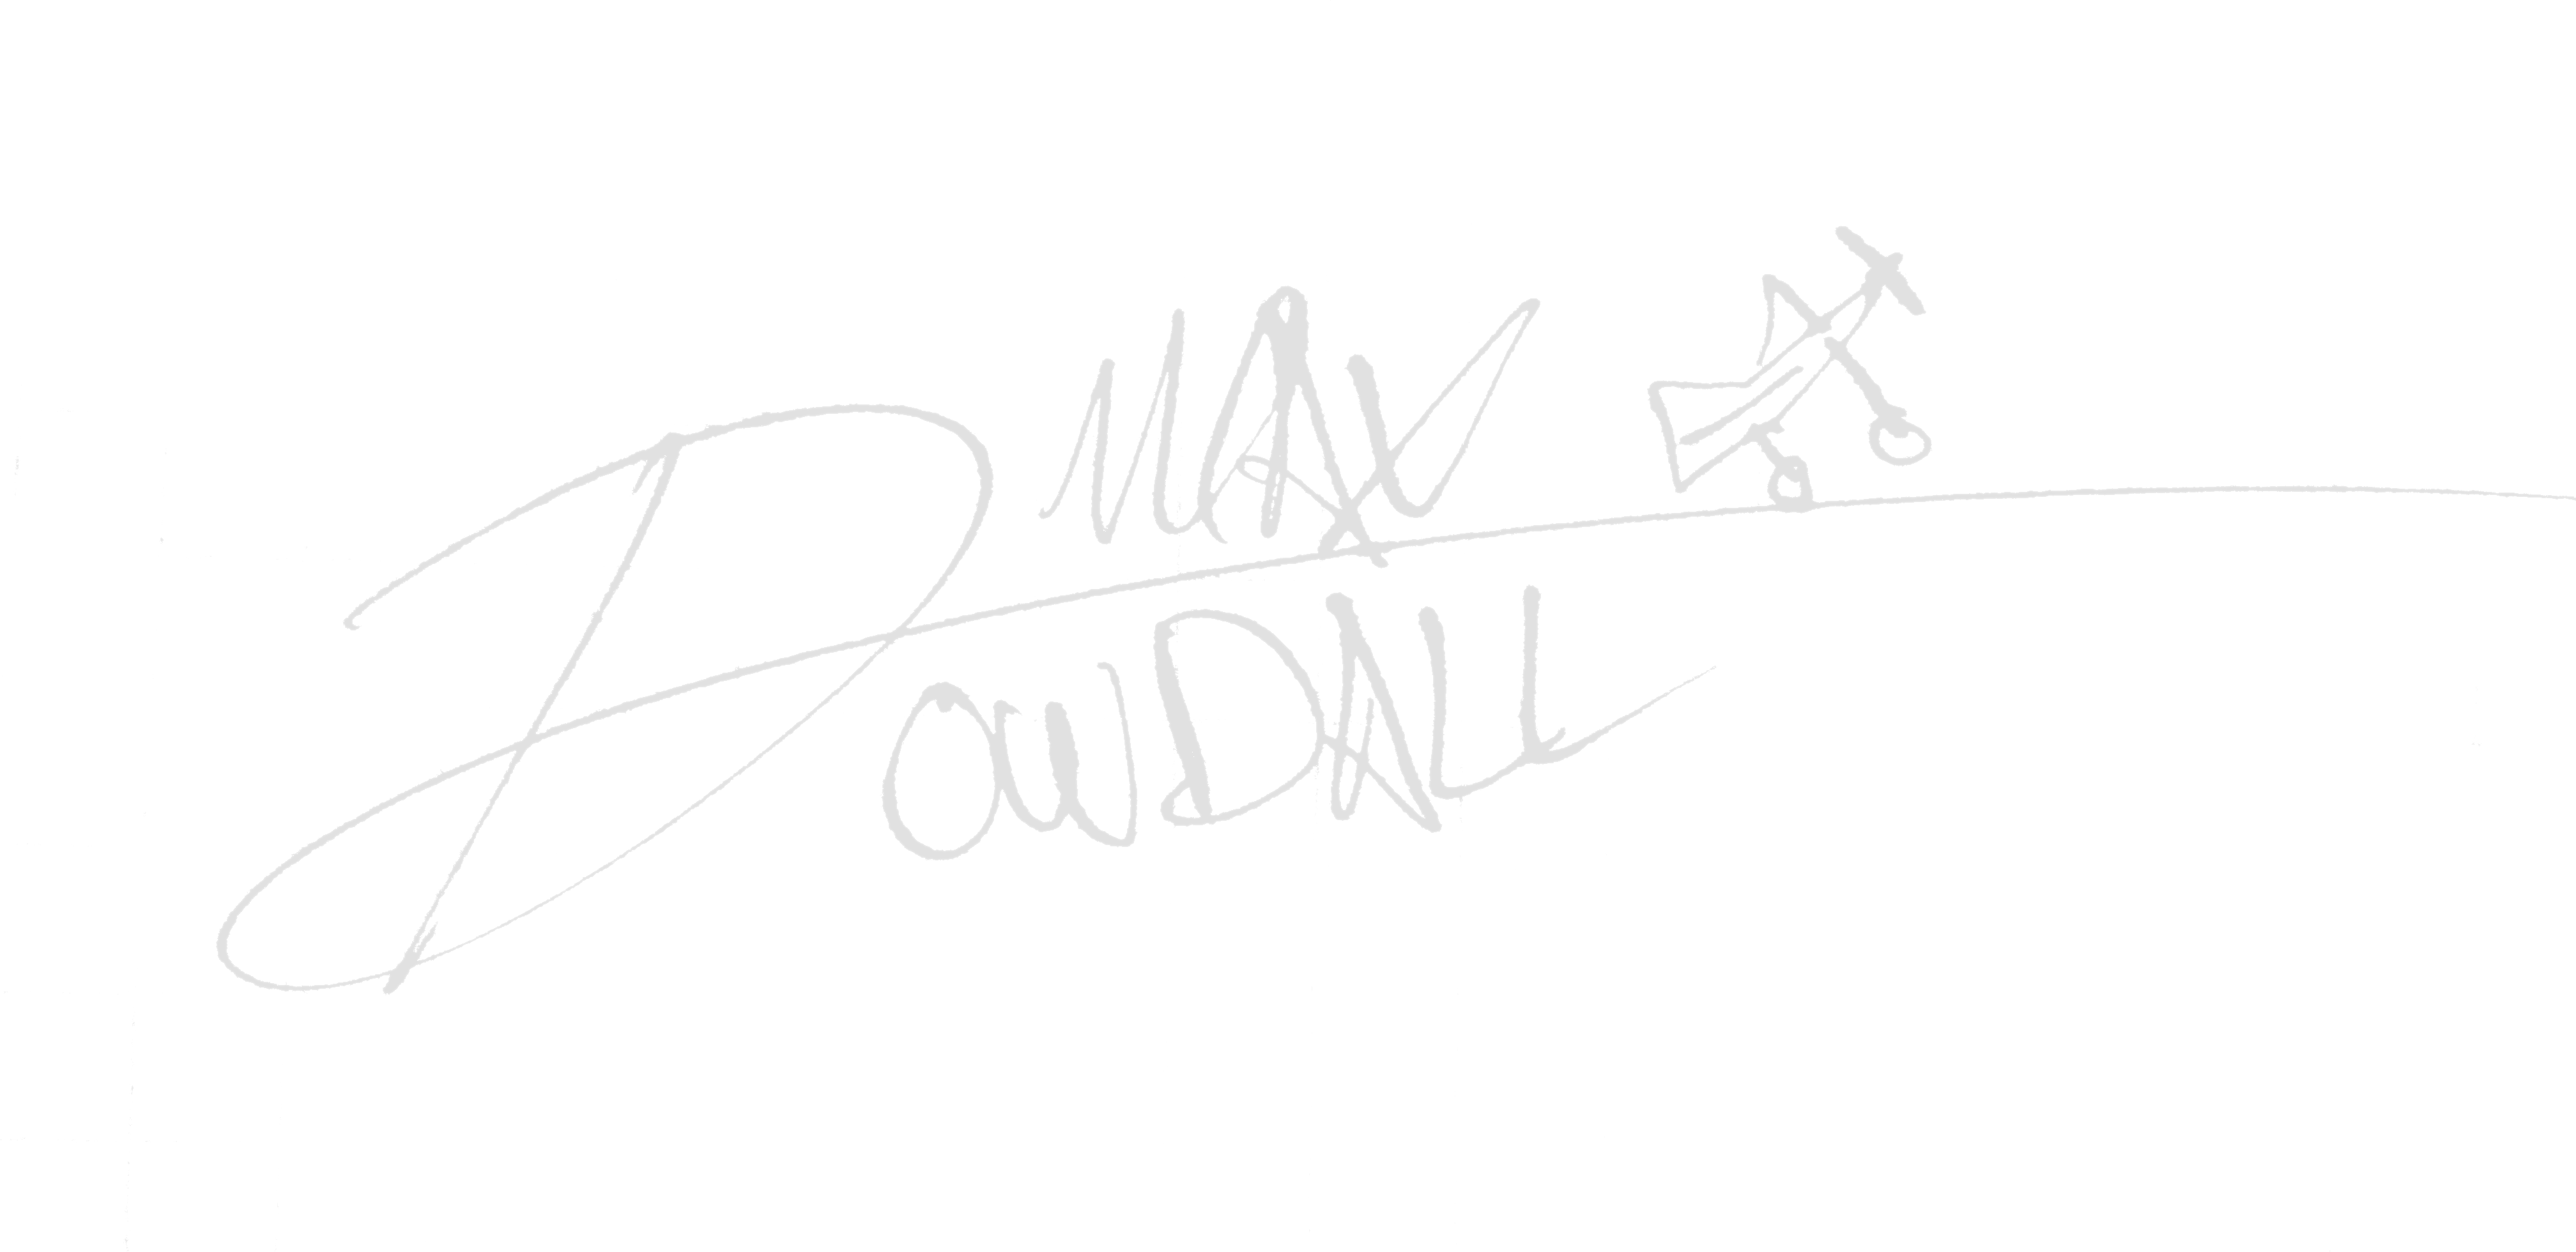 MAX
DOWDALL